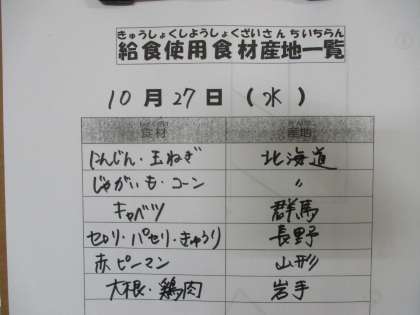 きゅうしょくしようしょくざいさんちいちらん
給食使用食材産地一覧
10月27日（水）
食材 産地
にんじん・玉ねぎ 北海道
じゃがいも・コーン 〃
キャベツ 群馬
セロリ・パセリ・きゅうり 長野
赤ピーマン 山形
大根・鶏肉 岩手